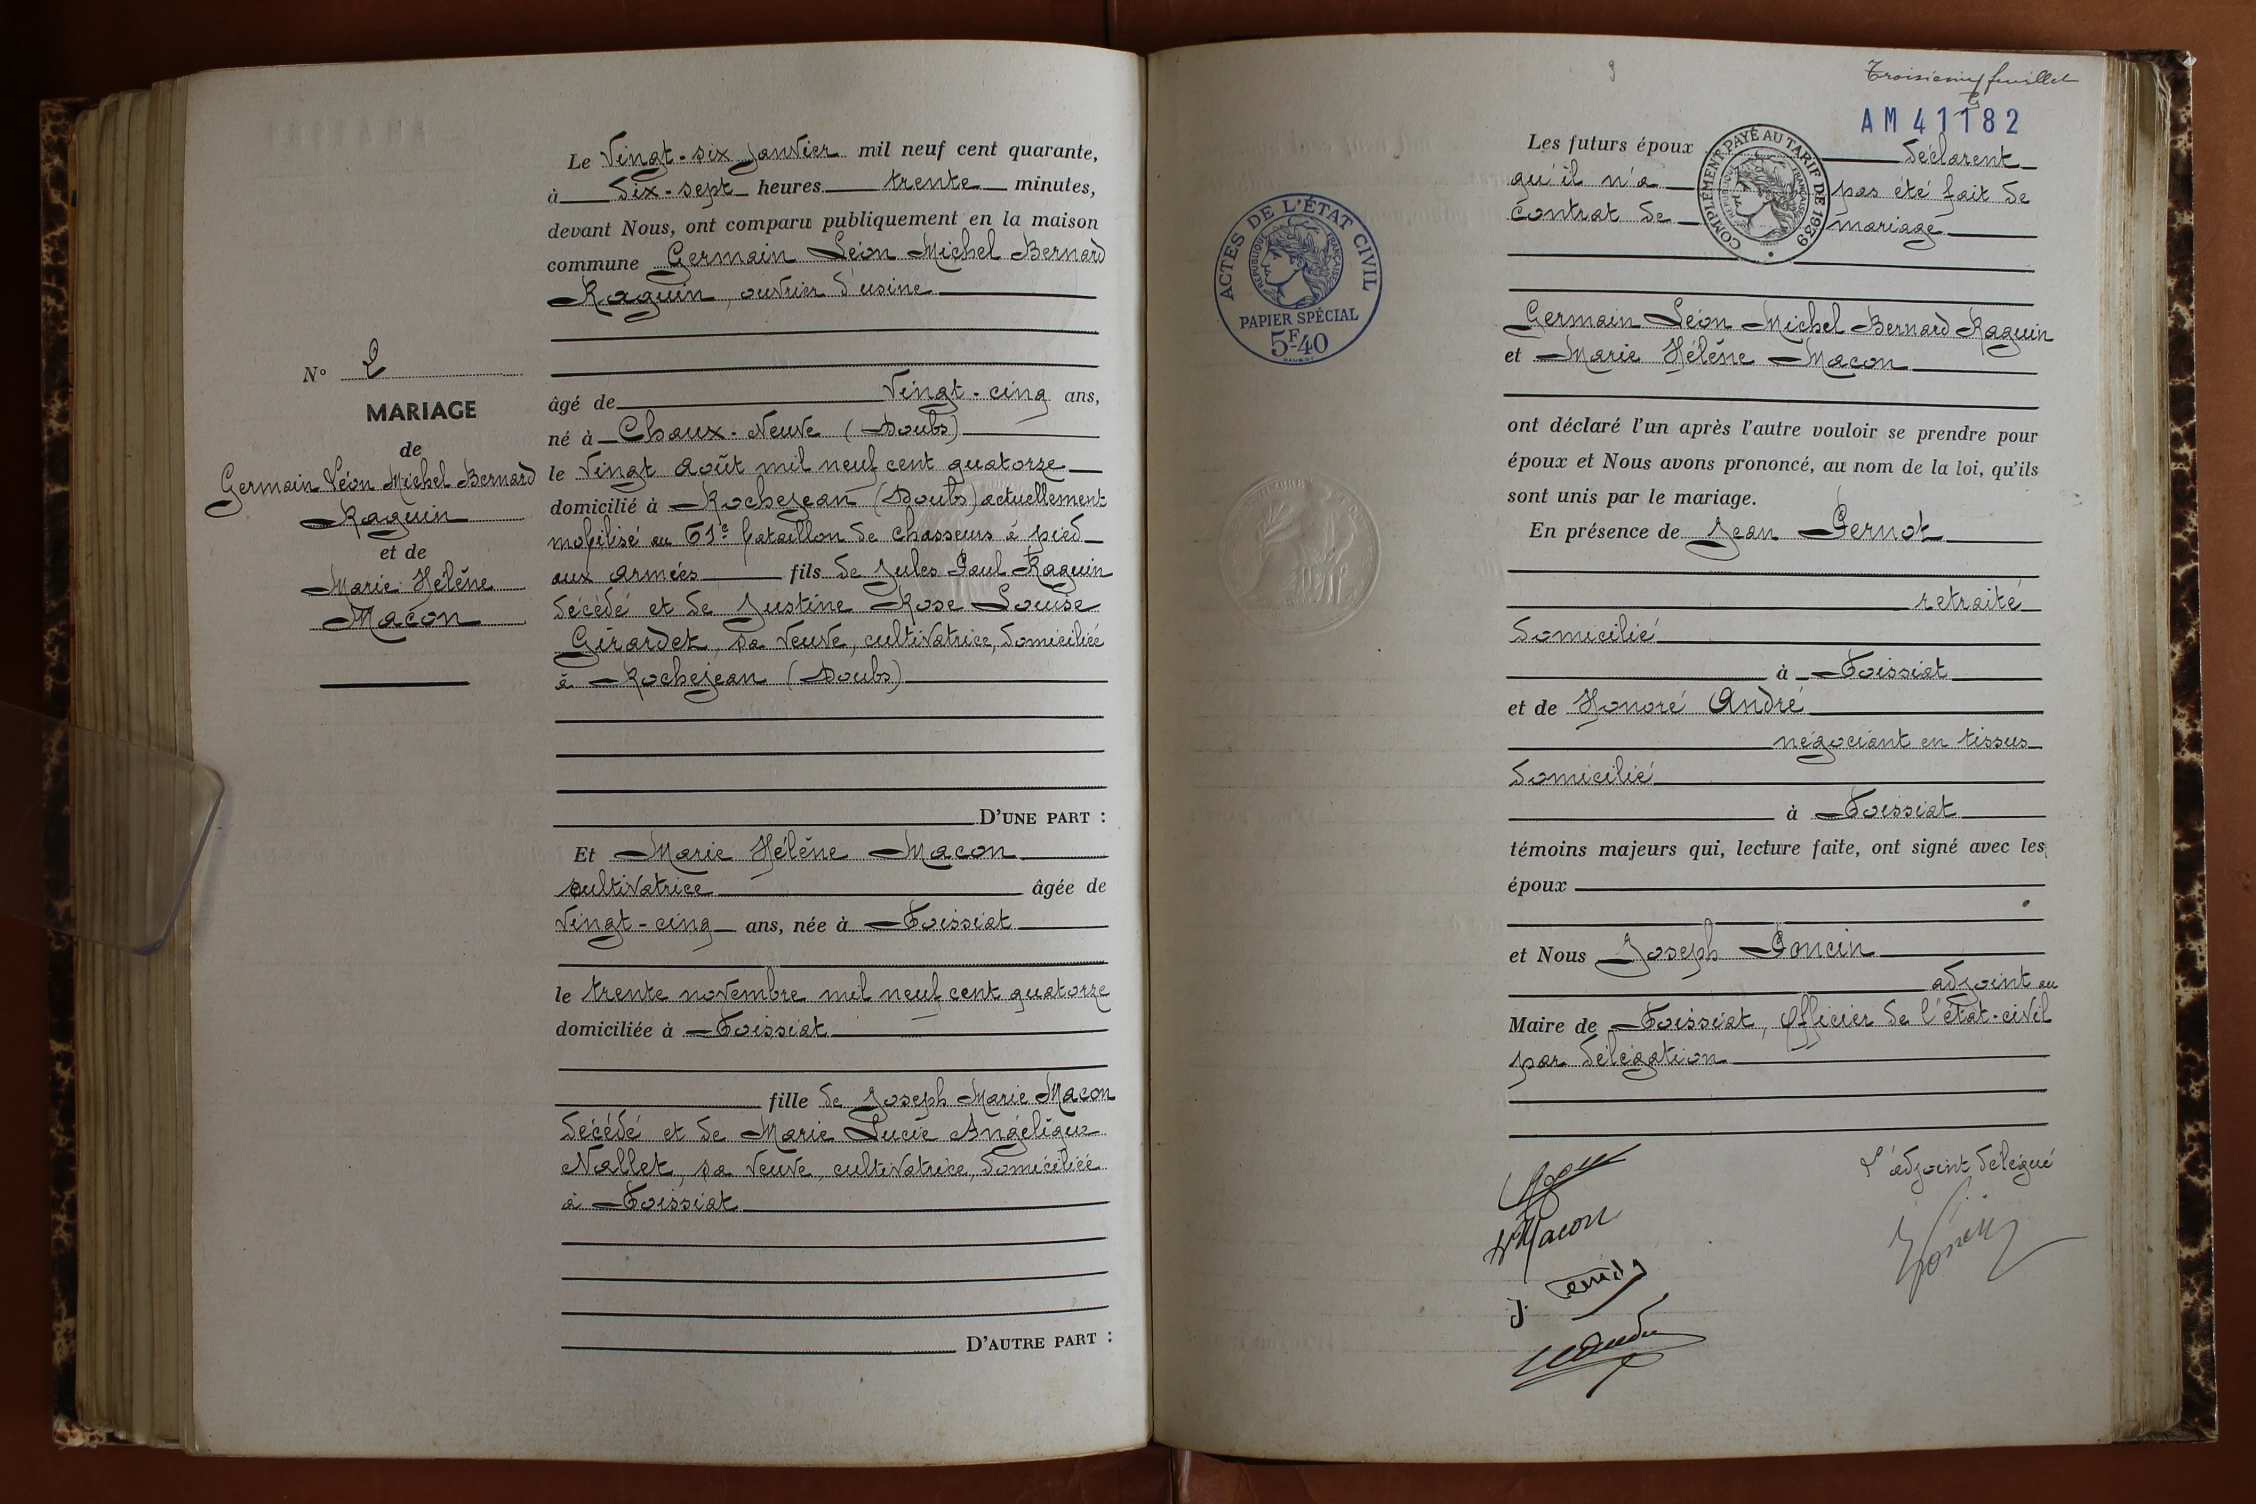 N° 2
MARIAGE
de
Germain Léon Michel Bernard
Raguin
et de
Marie Hélène
Macon
Le Vingt-six janvier mil neuf cent quarante,
à dix-sept heures trente minutes,
devant Nous, ont comparu publiquement en la maison
commune Germain Léon Michel Bernard
Raguin, ouvrier d'usine
âgé de Vingt-cinq ans,
né à Chaux-Neuve (Doubs)
le Vingt août mil neuf cent quatorze
domicilié à Rochejean (Doubs) actuellement
mobilisé au 61e bataillon de chasseurs à pied
aux armées fils de Jules Paul Raguin
décédé et de Justine Rose Louise
Girardet, sa veuve, cultivatrice, domiciliée
à Rochejean (Doubs)
D'UNE PART :
Et Marie Hélène Macon
cultivatrice âgée de
Vingt-cinq ans, née à Foissiat
le trente novembre mil neuf cent quatorze
domiciliée à Foissiat
fille de Joseph Marie Macon
décédé et de Marie Lucie Angélique
Nallet, sa veuve, cultivatrice, domiciliée
à Foissiat
D'AUTRE PART :
9
Troisième feuillet
AM 41182
Les futurs époux déclarent
qu'il n'a pas été fait de
contrat de mariage
COMPLÉMENT PAYÉ AU TARIF DE 1939
RÉPUBLIQUE FRANÇAISE
ACTES DE L'ÉTAT CIVIL
RÉPUBLIQUE FRANÇAISE
PAPIER SPÉCIAL
5F40
Germain Léon Michel Bernard Raguin
et Marie Hélène Macon
ont déclaré l'un après l'autre vouloir se prendre pour
époux et Nous avons prononcé, au nom de la loi, qu'ils
sont unis par le mariage.
En présence de Jean Pernot
retraité
domicilié
à Foissiat
et de Honoré André
négociant en tissus
domicilié
à Foissiat
témoins majeurs qui, lecture faite, ont signé avec les
époux
et Nous Joseph Poncin
adjoint au
Maire de Foissiat, Officier de l'état-civil
par délégation
L'adjoint délégué
Macon
J.